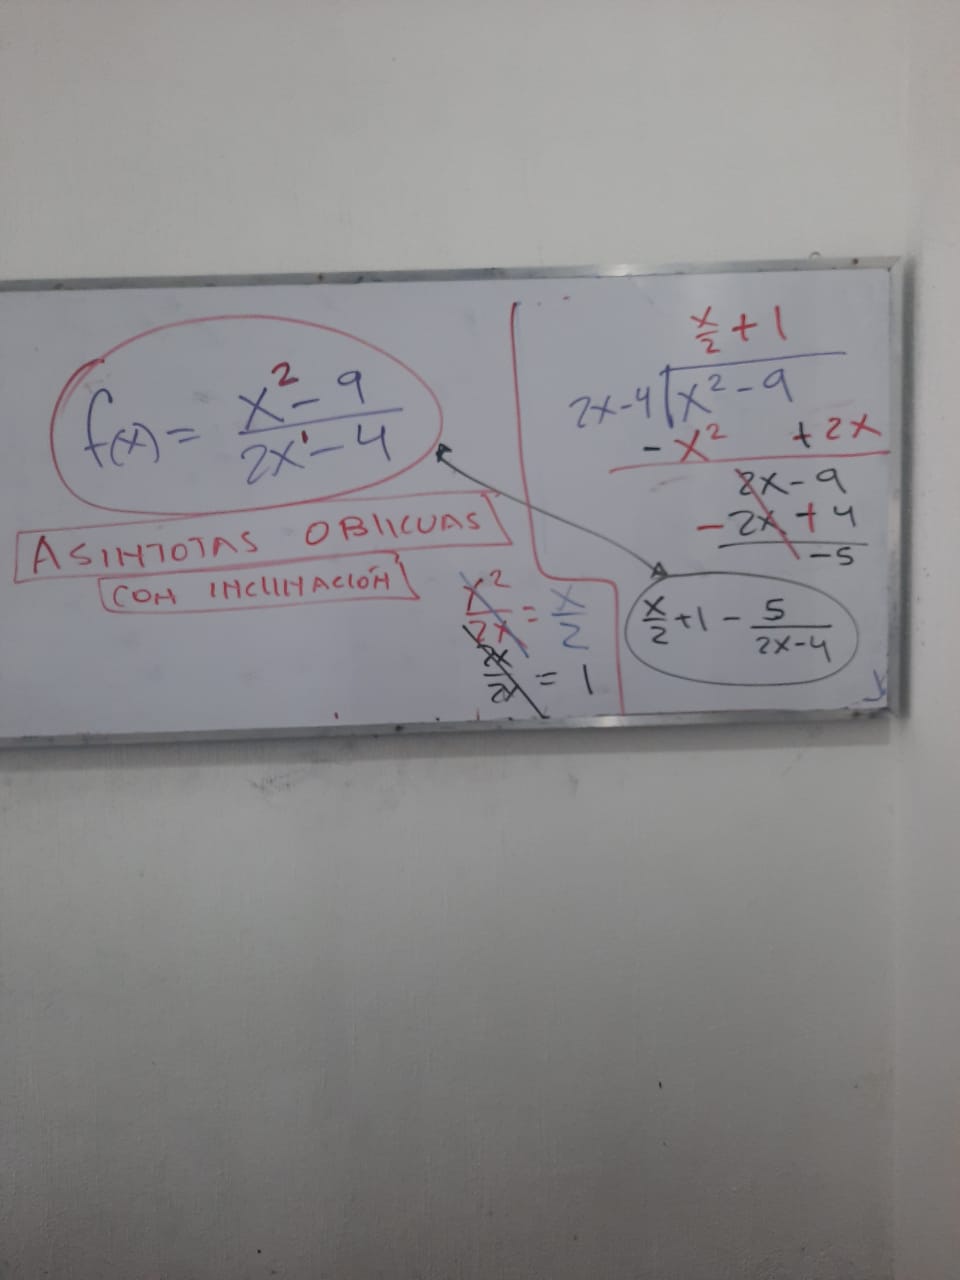 f(x) = x² - 9 / 2x¹ - 4
ASINTOTAS OBLICUAS
CON INCLINACIÓN
x² / 2x = x / 2
2x / 2x = 1
x/2 + 1
2x-4 | x² - 9
- x² + 2x
2x - 9
- 2x + 4
-5
x/2 + 1 - 5 / 2x-4